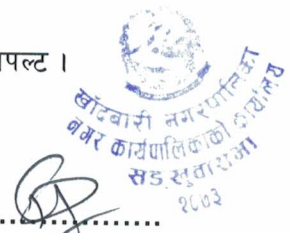 पल्ट ।
खाँदबारी नगरपालिका
नगर कार्यपालिकाको कार्यालय
सङ्खुवासभा
२०७३